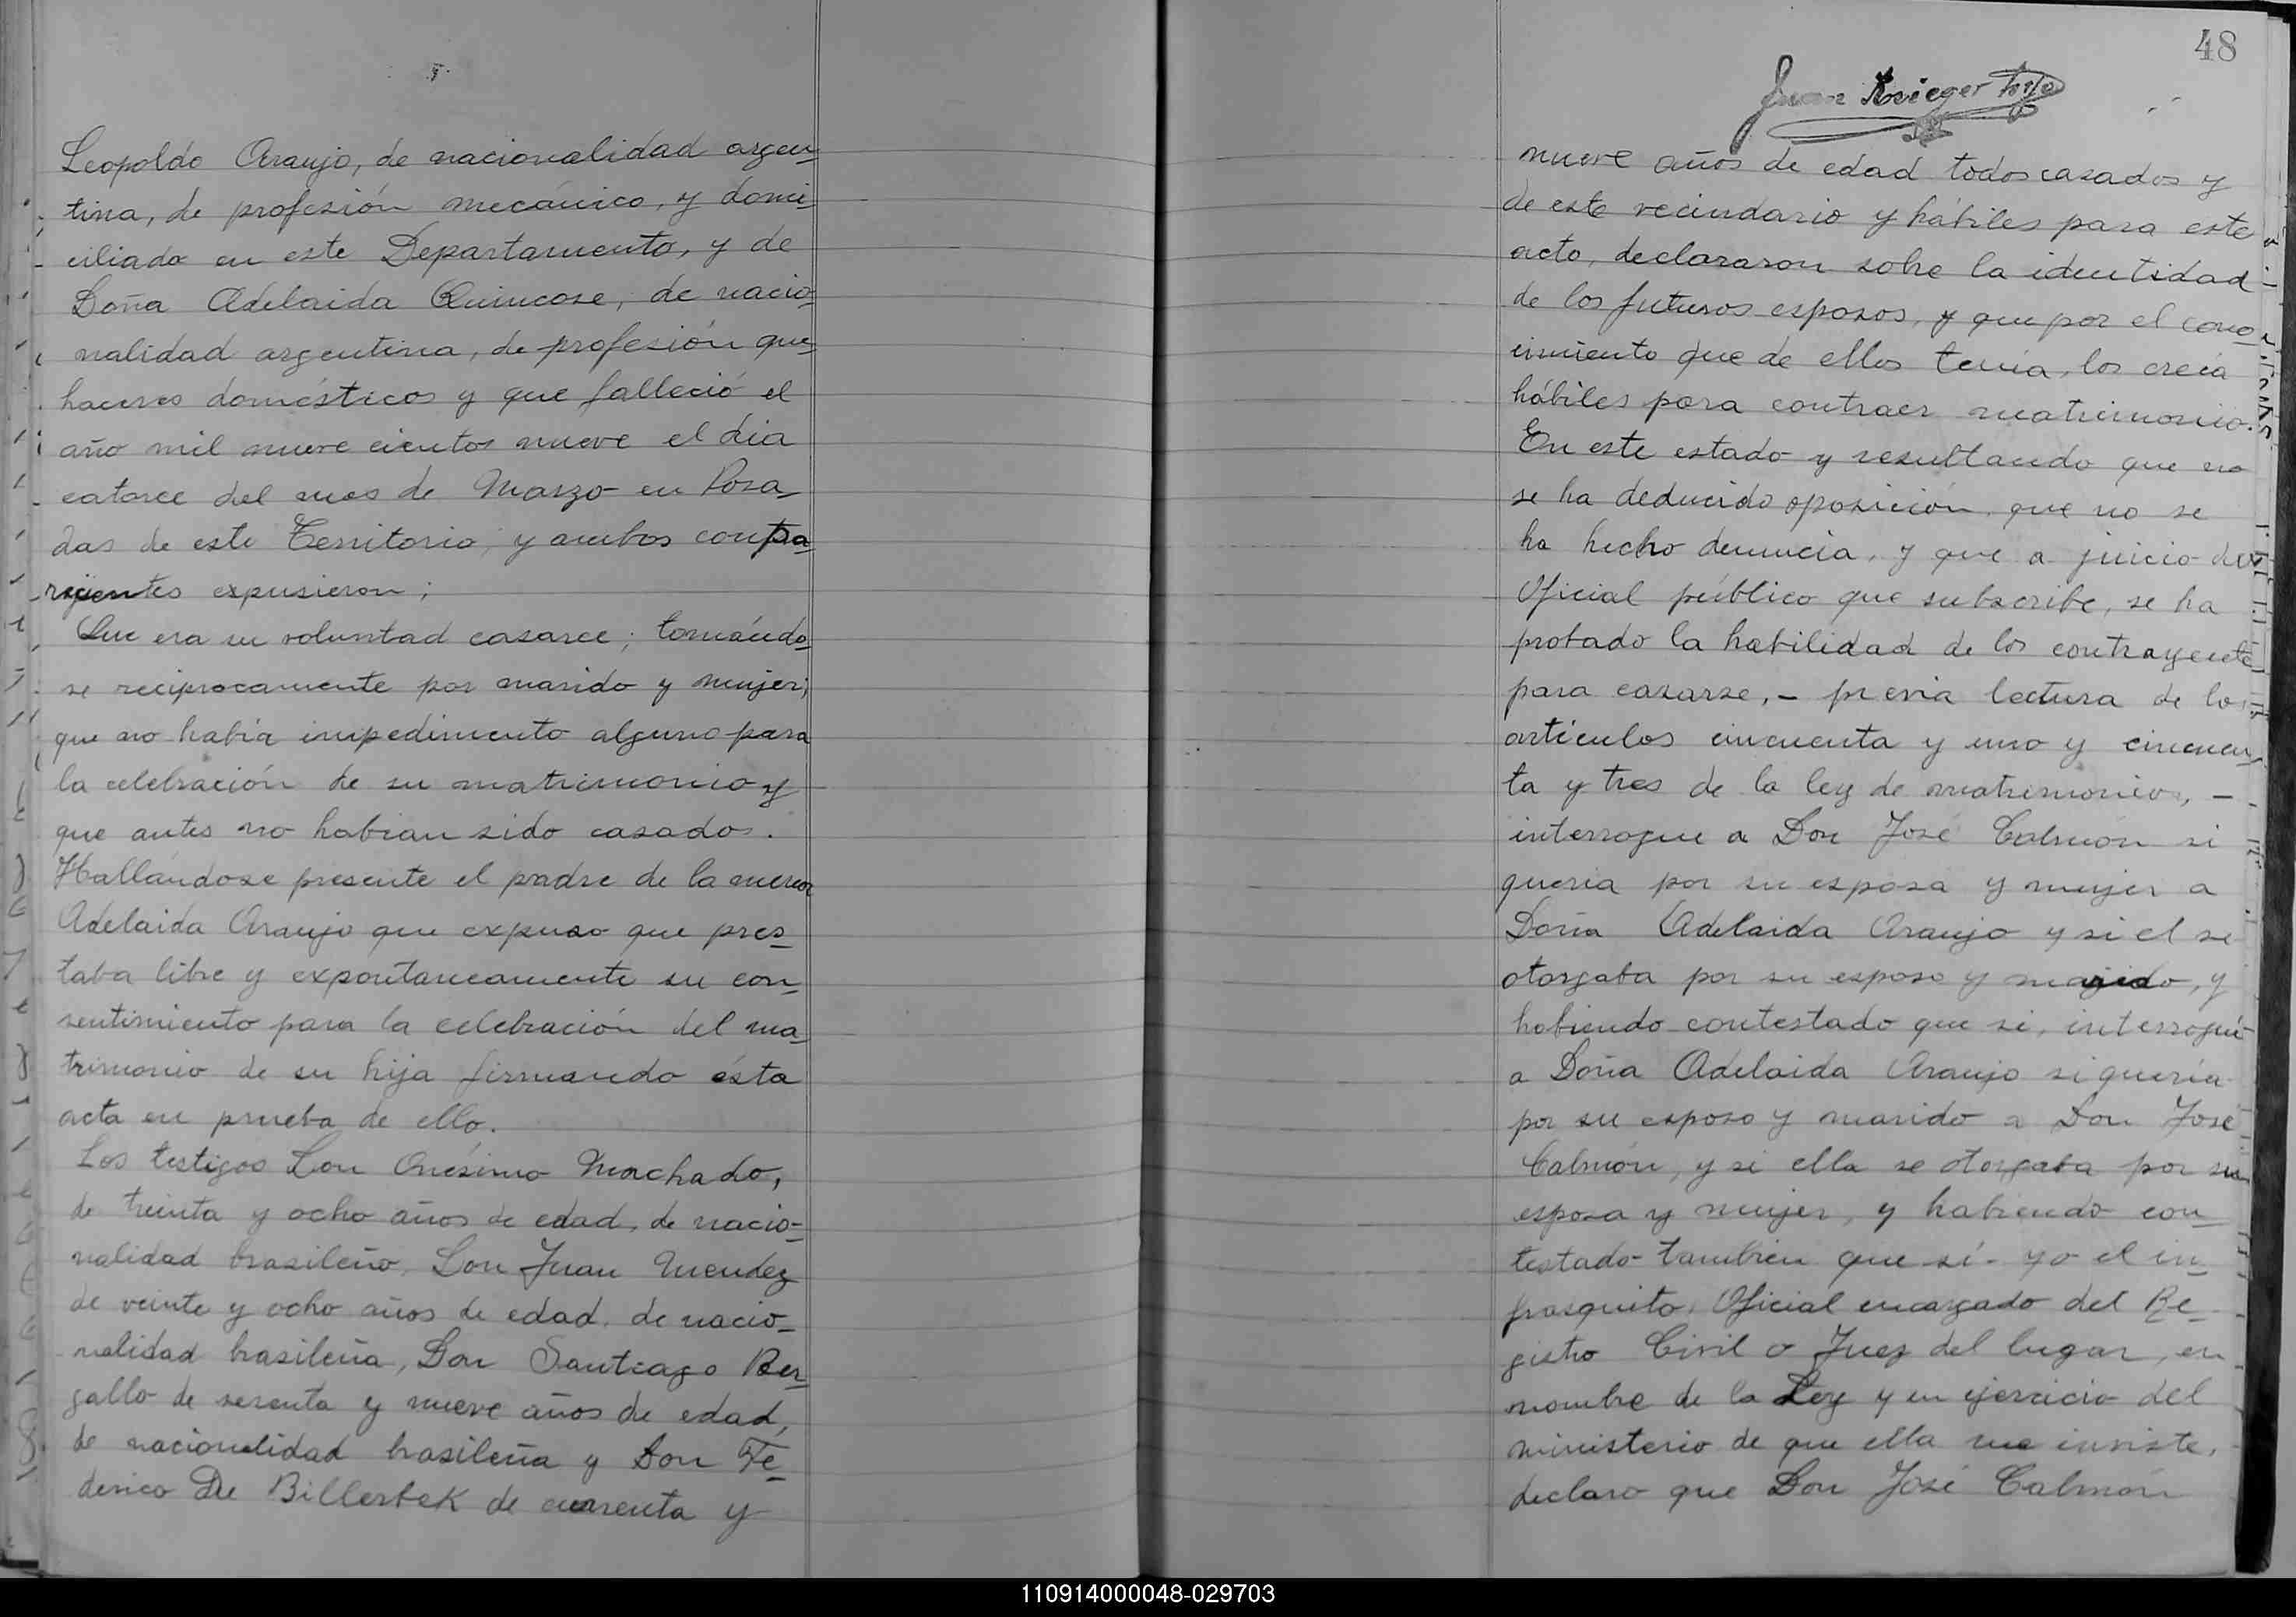 Leopoldo Araujo, de nacionalidad argen-
tina, de profesión mecánico, y domi-
ciliado en este Departamento, y de
Doña Adelaida Quincose, de nacio-
nalidad argentina, de profesión que-
haceres domésticos y que falleció el
año mil nueve cientos nueve el dia
catorce del mes de Marzo en Posa-
das de este Territorio, y ambos compa-
recientes expusieron;
Que era su voluntad casarce; tomándo-
se reciprocamente por marido y mujer;
que no había impedimento alguno para
la celebración de su matrimonio y
que antes no habian sido casados.
Hallándose presente el padre de la menor
Adelaida Araujo que expuso que pres-
taba libre y expontaneamente su con-
sentimiento para la celebración del ma-
trimonio de su hija firmando ésta
acta en prueba de ello.
Los testigos Don Onésimo Machado,
de treinta y ocho años de edad, de nacio-
nalidad brasileño, Don Juan Mendez
de veinte y ocho años de edad, de nacio-
nalidad brasileña, Don Santiago Ber-
gallo de sesenta y nueve años de edad,
de nacionalidad brasileña y Don Fe-
derico De Billerbek de cuarenta y
48
Juan Krieger hijo
nueve años de edad todos casados y
de este vecindario y hábiles para este
acto, declararon sobre la identidad
de los futuros esposos, y que por el cono-
cimiento que de ellos tenía, los creía
hábiles para contraer matrimonio.
En este estado y resultando que no
se ha deducido oposición, que no se
ha hecho denuncia, y que a juicio del
Oficial público que subscribe, se ha
probado la habilidad de los contrayentes
para casarse, - previa lectura de los
artículos cincuenta y uno y cincuen-
ta y tres de la ley de matrimonios, -
interrogue a Don José Calmón si
queria por su esposa y mujer a
Doña Adelaida Araujo y si el se
otorgaba por su esposo y marido, y
habiendo contestado que si, interrogué
a Doña Adelaida Araujo si quería
por su esposo y marido a Don José
Calmón, y si ella se otorgaba por su
esposa y mujer, y habiendo con-
testado tambien que sí - yo el in-
frasquito, Oficial encargado del Re-
gistro Civil o Juez del lugar, en
nombre de la Ley y en ejercicio del
ministerio de que ella me inviste,
declaro que Don José Calmón
110914000048-029703